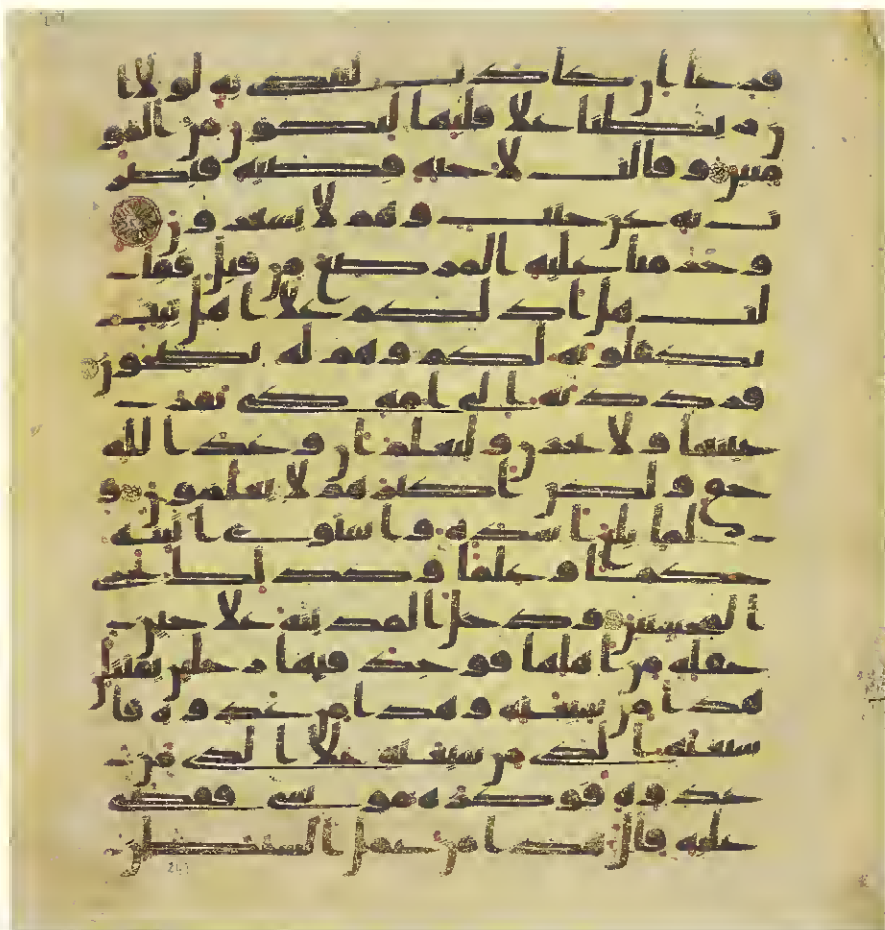 فرغا ان كادت لتبدى به لولا ا
ن ربطنا علا قلبها لتكون من المو
منين وقالت لاخته قصيه فبصر
ت به عن جنب وهم لا يشعرون
وحرمنا عليه المرضع من قبل فقا
لت هل ادلكم علا اهل بيت
يكفلونه لكم وهم له نصحون
فرددنه الى امه كى تقر
عينها ولا تحزن ولتعلم ان وعد الله
حق ولكن اكثرهم لا يعلمون و
لما بلغ اشده واستوى اتينه
حكما وعلما وكذلك نجزى
المحسنين ودخل المدينه علا حين
غفله من اهلها فوجد فيها رجلين يقتتلن
هذا من شيعته وهذا من عدوه فا
ستغثه الذى من شيعته علا الذى من
عدوه فوكزه موسى فقضى
عليه قال هذا من عمل الشيطن